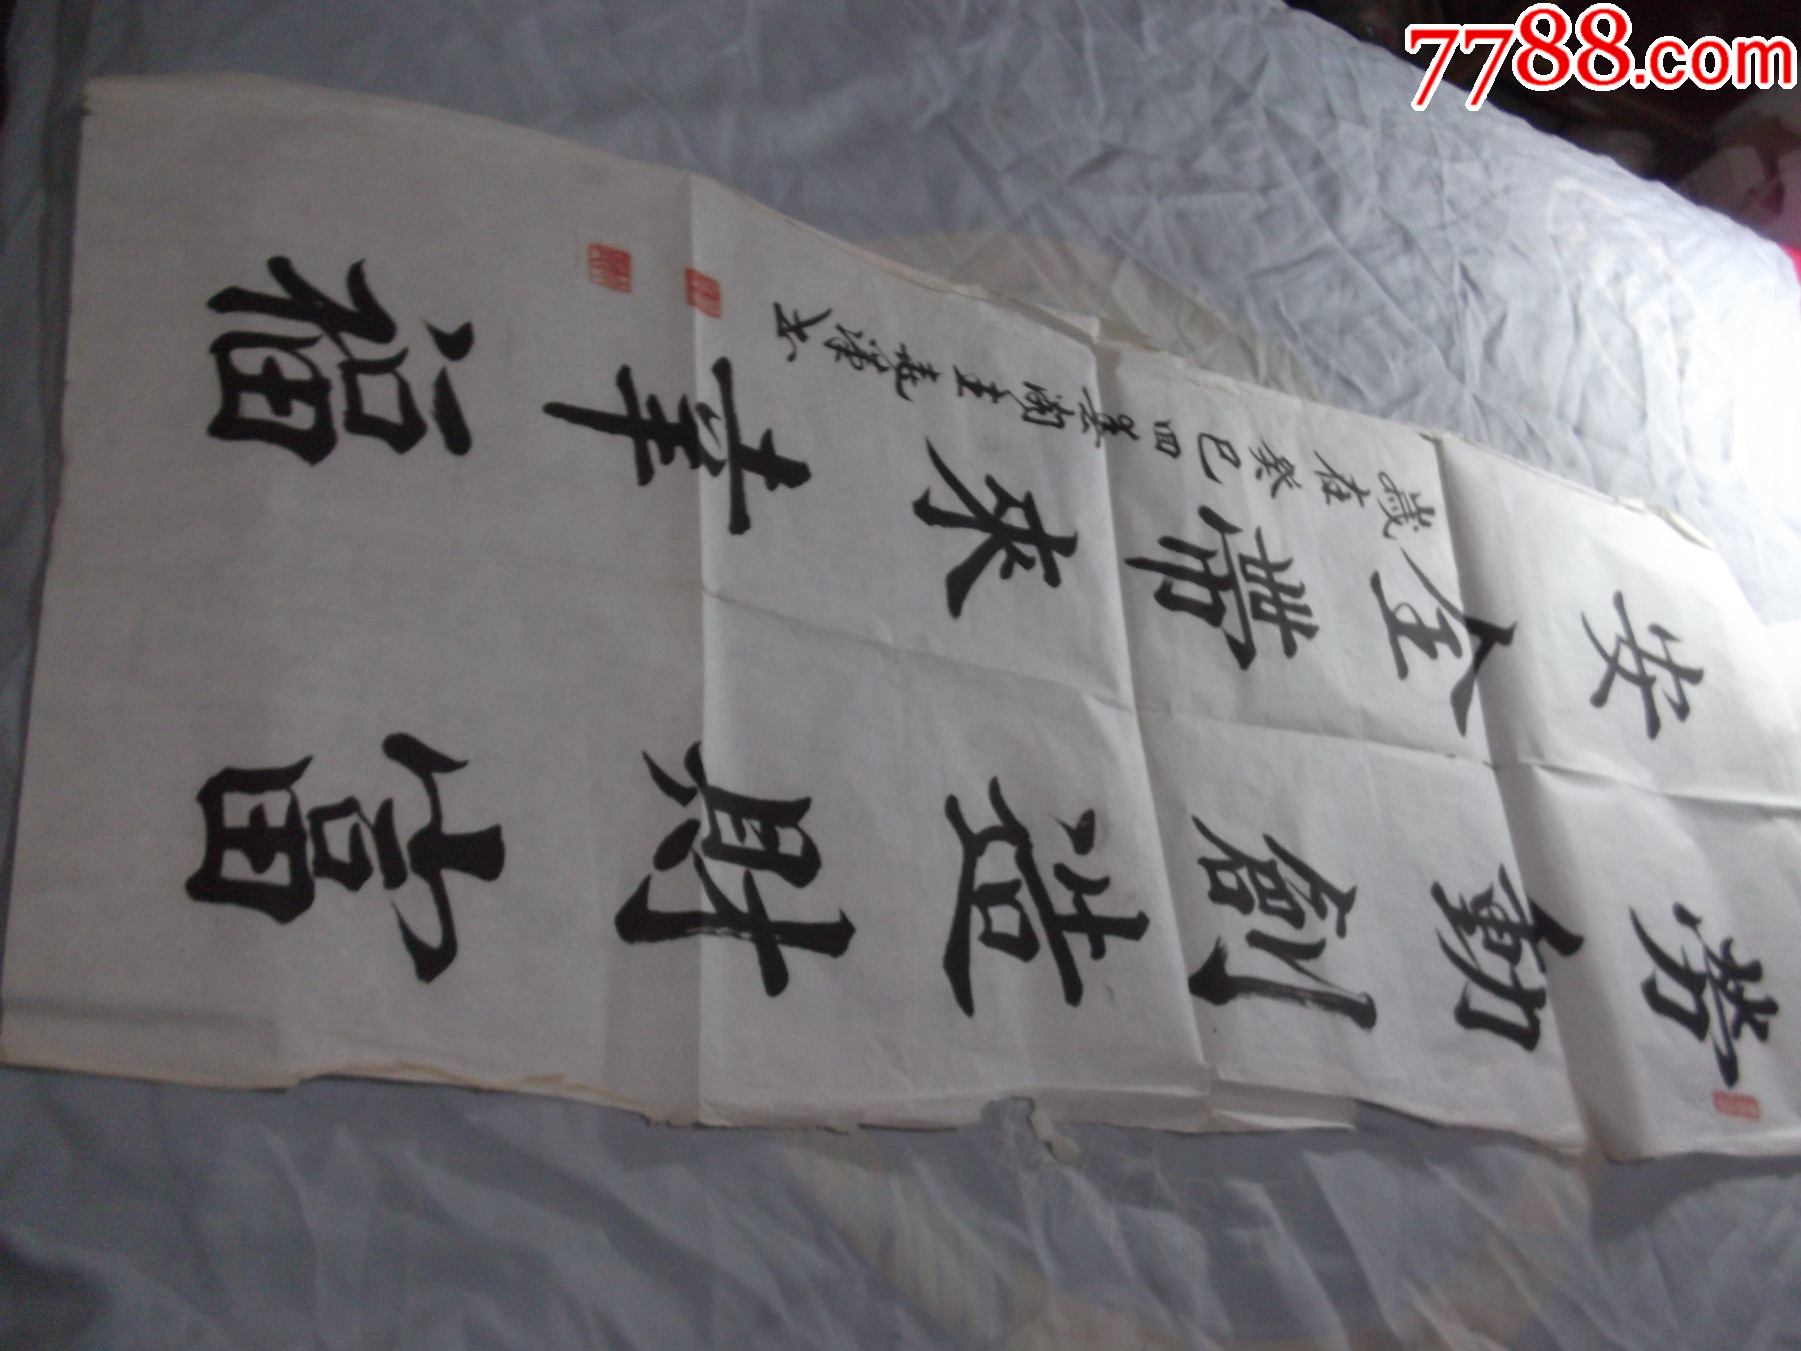 7788.com
勞動創造財富
安全帶來幸福
歲在癸巳四墨閣主